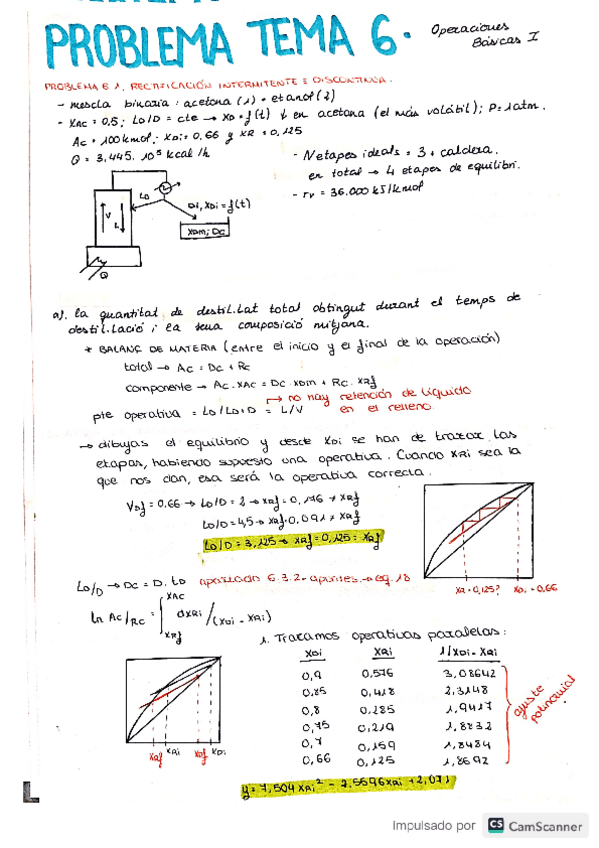 PROBLEMA TEMA 6. Operaciones Básicas I
PROBLEMA 6.1. RECTIFICACIÓN INTERMITENTE = DISCONTINUA.
- mezcla binaria: acetona (1) + etanol (2)
- XAC = 0,5; L0/D = cte → XD = f(t) ↓ en acetona (el más volátil); P = 1 atm.
AC = 100 kmol; XDi = 0,66 y XR = 0,125
Q = 3,445. 10⁵ kcal/h
- N etapas ideals = 3 + caldera.
en total → 4 etapas de equilibri.
- rv = 36.000 kJ/kmol
L0
Di, XDi = f(t)
V
L
XDm; DC
Q
a). la quantitat de destil.lat total obtingut durant el temps de
destil.lació i la seua composició mitjana.
* BALANÇ DE MATERIA (entre el inicio y el final de la operación)
total → AC = DC + RC
componente → AC. XAC = DC. XDm + RC. XRf
→ no hay retención de líquido
en el relleno.
pte operativa = L0/L0+D = L/V
→ dibujas el equilibrio y desde XDi se han de trazar las
etapas, habiendo supuesto una operativa. Cuando XRi sea la
que nos dan, esa será la operativa correcta.
XDf = 0.66 → L0/D = 2 → XRf = 0,176 ≠ XRf
L0/D = 4,5 → XRf = 0,091 ≠ XRf
L0/D = 3,125 → XRf = 0,125 = XRf
XR = 0,125? XDi = 0,66
L0/D → DC = D. L0 apartado 6.3.2 - apuntes. → eq. 18
ln AC/RC = ∫ XAC XRf dXRi / (XDi - XRi)
1. Trazamos operativas paralelas:
XDi XRi 1/XDi - XRi
0,9 0,576 3,08642
0,85 0,418 2,3148
0,8 0,285 1,9417
0,75 0,219 1,8832
0,7 0,159 1,8484
0,66 0,125 1,8692
ajuste polinomial
XRf XRi XDf XDi
y = 7,504 XRi² - 2,5696 XRi + 2,071
Impulsado por CS CamScanner